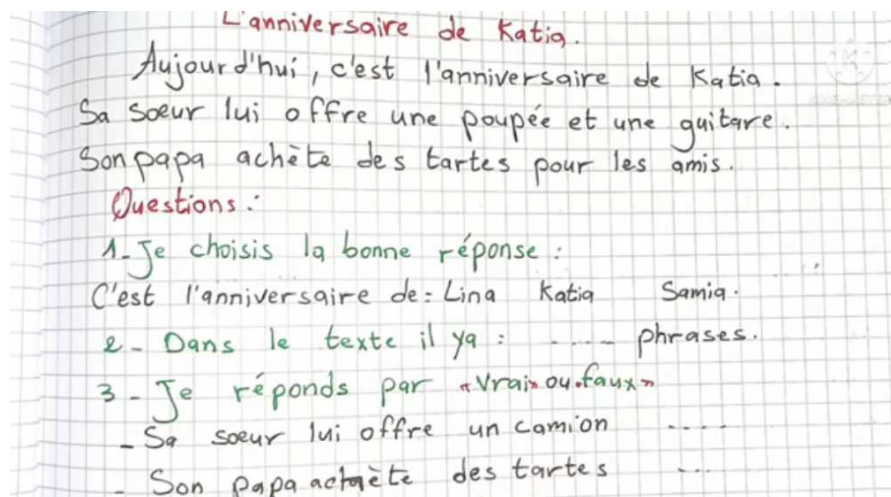 L'anniversaire de Katia.
Aujourd'hui, c'est l'anniversaire de Katia.
Sa soeur lui offre une poupée et une guitare.
Son papa achète des tartes pour les amis.
Questions:
1- Je choisis la bonne réponse :
C'est l'anniversaire de: Lina Katia Samia.
2- Dans le texte il ya : ..... phrases.
3- Je réponds par «Vrai» ou «faux»
- Sa soeur lui offre un camion .....
- Son papa achète des tartes ....